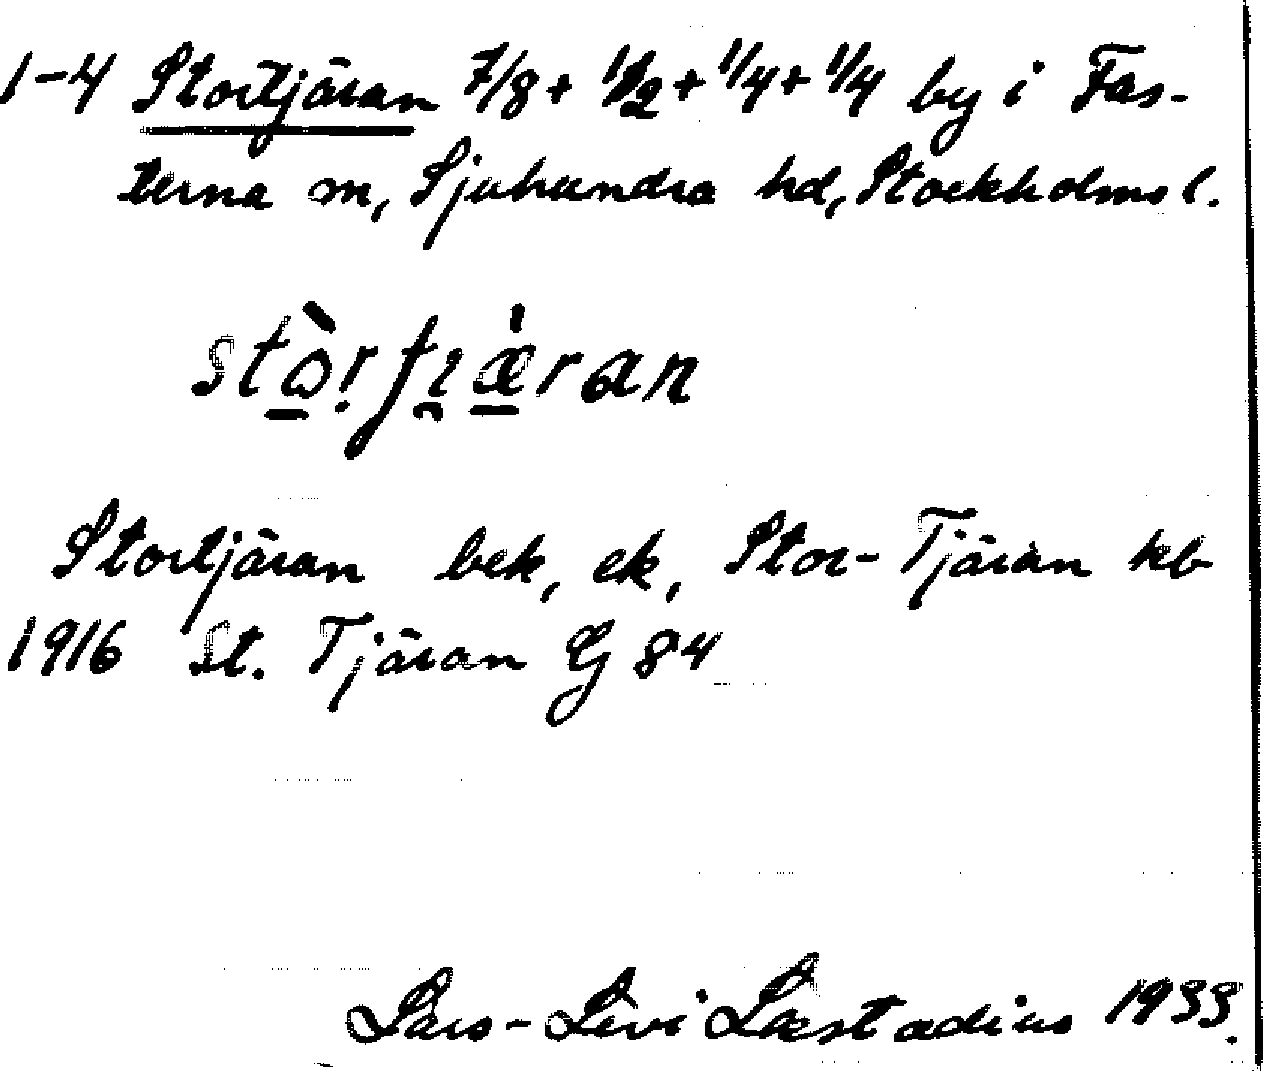 1-4 Stortjäran 7/8 + 1/2 + 1/4 + 1/4 by i Fas-
terna sn, Sjuhundra hd, Stockholms l.
Stortjäran bek, ek, Stor-Tjäran kb
1916 St. Tjäran G 84
Lars-Levi Læstadius 1933.